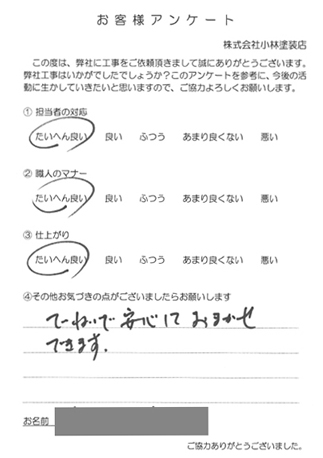 お客様アンケート
株式会社小林塗装店
この度は、弊社に工事をご依頼頂きまして誠にありがとうございます。
弊社工事はいかがでしたでしょうか?このアンケートを参考に、今後の活
動に生かしていきたいと思いますので、ご協力よろしくお願いします。
① 担当者の対応
たいへん良い 良い ふつう あまり良くない 悪い
② 職人のマナー
たいへん良い 良い ふつう あまり良くない 悪い
③ 仕上がり
たいへん良い 良い ふつう あまり良くない 悪い
④その他お気づきの点がございましたらお願いします
てーねいで 安心して おまかせ
できます.
お名前
ご協力ありがとうございました。